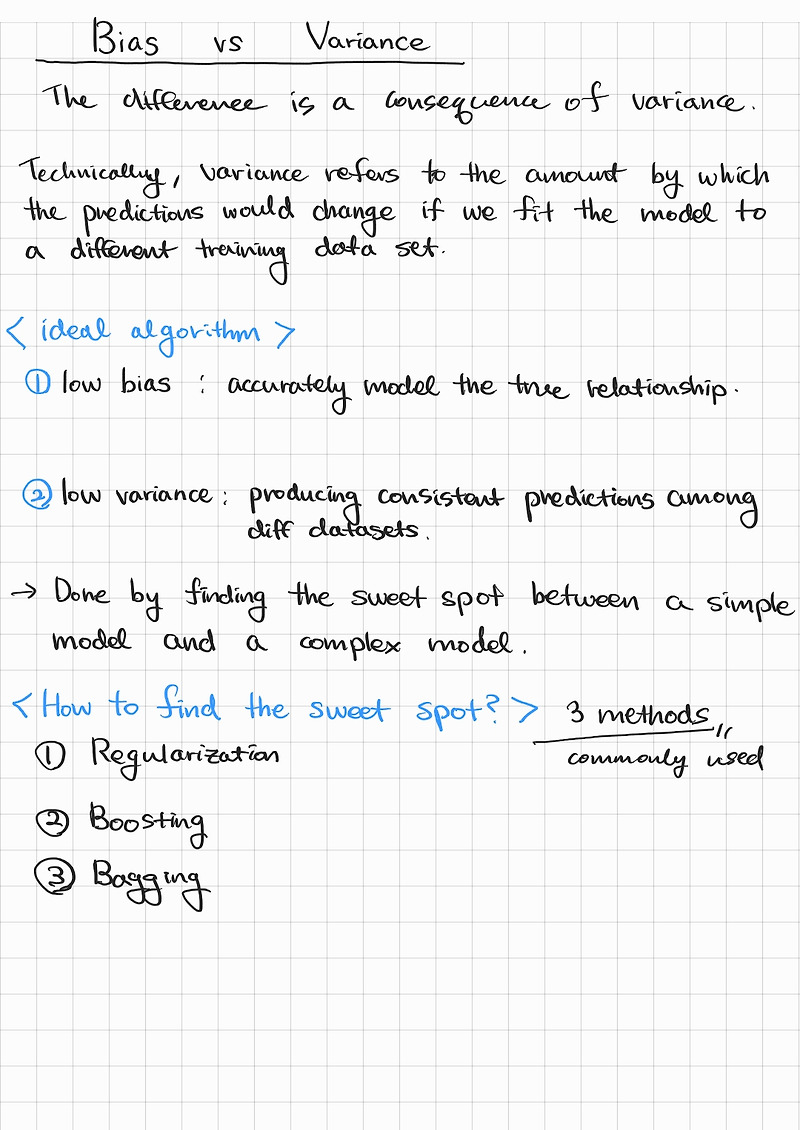 Bias vs Variance
The difference is a consequence of variance.
Technically, variance refers to the amount by which
the predictions would change if we fit the model to
a different training data set.
< ideal algorithm >
① low bias : accurately model the true relationship.
② low variance : producing consistent predictions among
diff datasets.
→ Done by finding the sweet spot between a simple
model and a complex model.
< How to find the sweet spot? > 3 methods
commonly used
① Regularization
② Boosting
③ Bagging